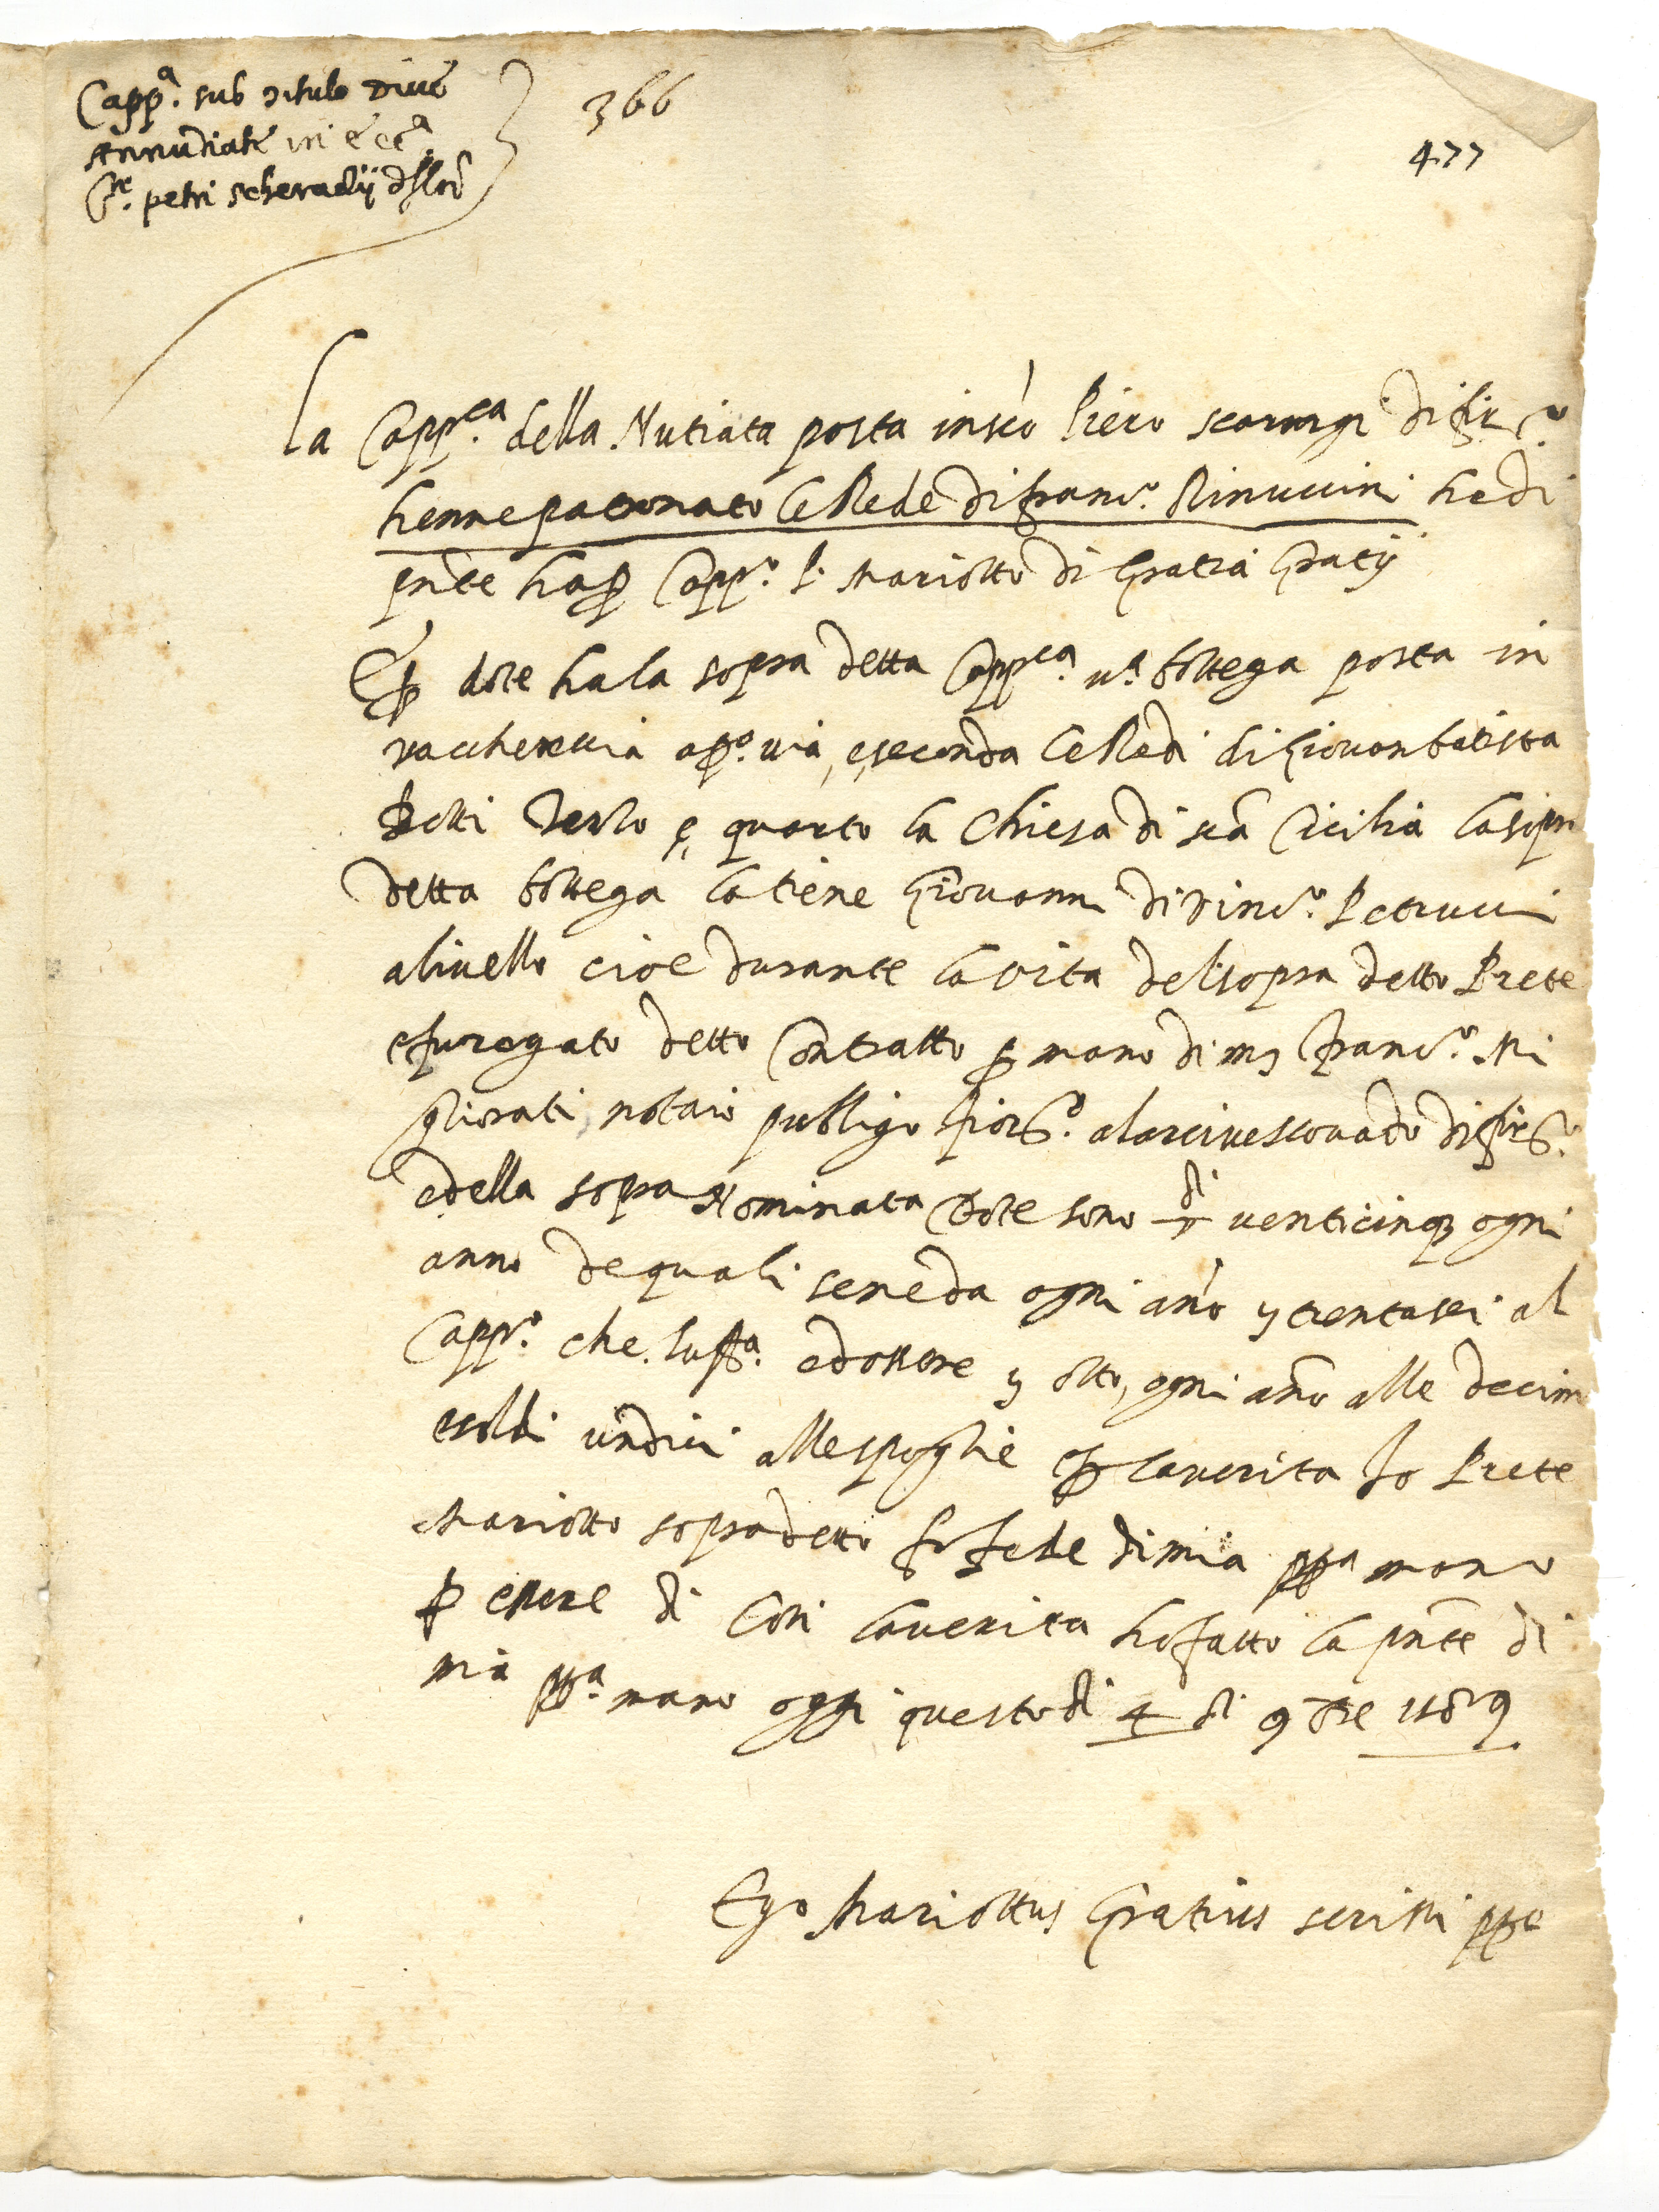 Capp.a sub titulo Dive
Annuntiate in ecc.a
S. petri scheradij
366
477
la Capp.ca della Nutiata posta in sco Piero scaraggi di fir.
henne patronato le Rede di franc.o Rinuccini he di
pnte ha p Capp.o P. Mariotto di Gratia Gratij
E p dote ha la sopra detta Capp.ca u.a bottega posta in
vacchereccia a p.o via, e, seconda le Redi di Giovanbatista
terzo e quarto la Chiesa di sca Cicilia la sopra
detta bottega la tiene Giovanni di Vinc.o Petrucci
a livello cioe durante la vita del sopra detto Prete
e fu rogato detto Contratto p mano di franc.o Mi
gliorati, notaio publigo fior.o al arcivescovado di fir.
e della sopra Nominata Dote sono di venticinq ogni
anno de quali se ne da ogni ano trentasei al
Capp.o che e dottere otto, ogni ano alle decim
e soldi undici alle spoglie E p la verita Io Prete
Mariotto sopradetto fo fede di mia ppa mano
p essere di Cosi la verita ho fatto la pnte di
mia pp.a mano oggi questo di 4 di 9bre
Ego Mariottus Gratius scrissi